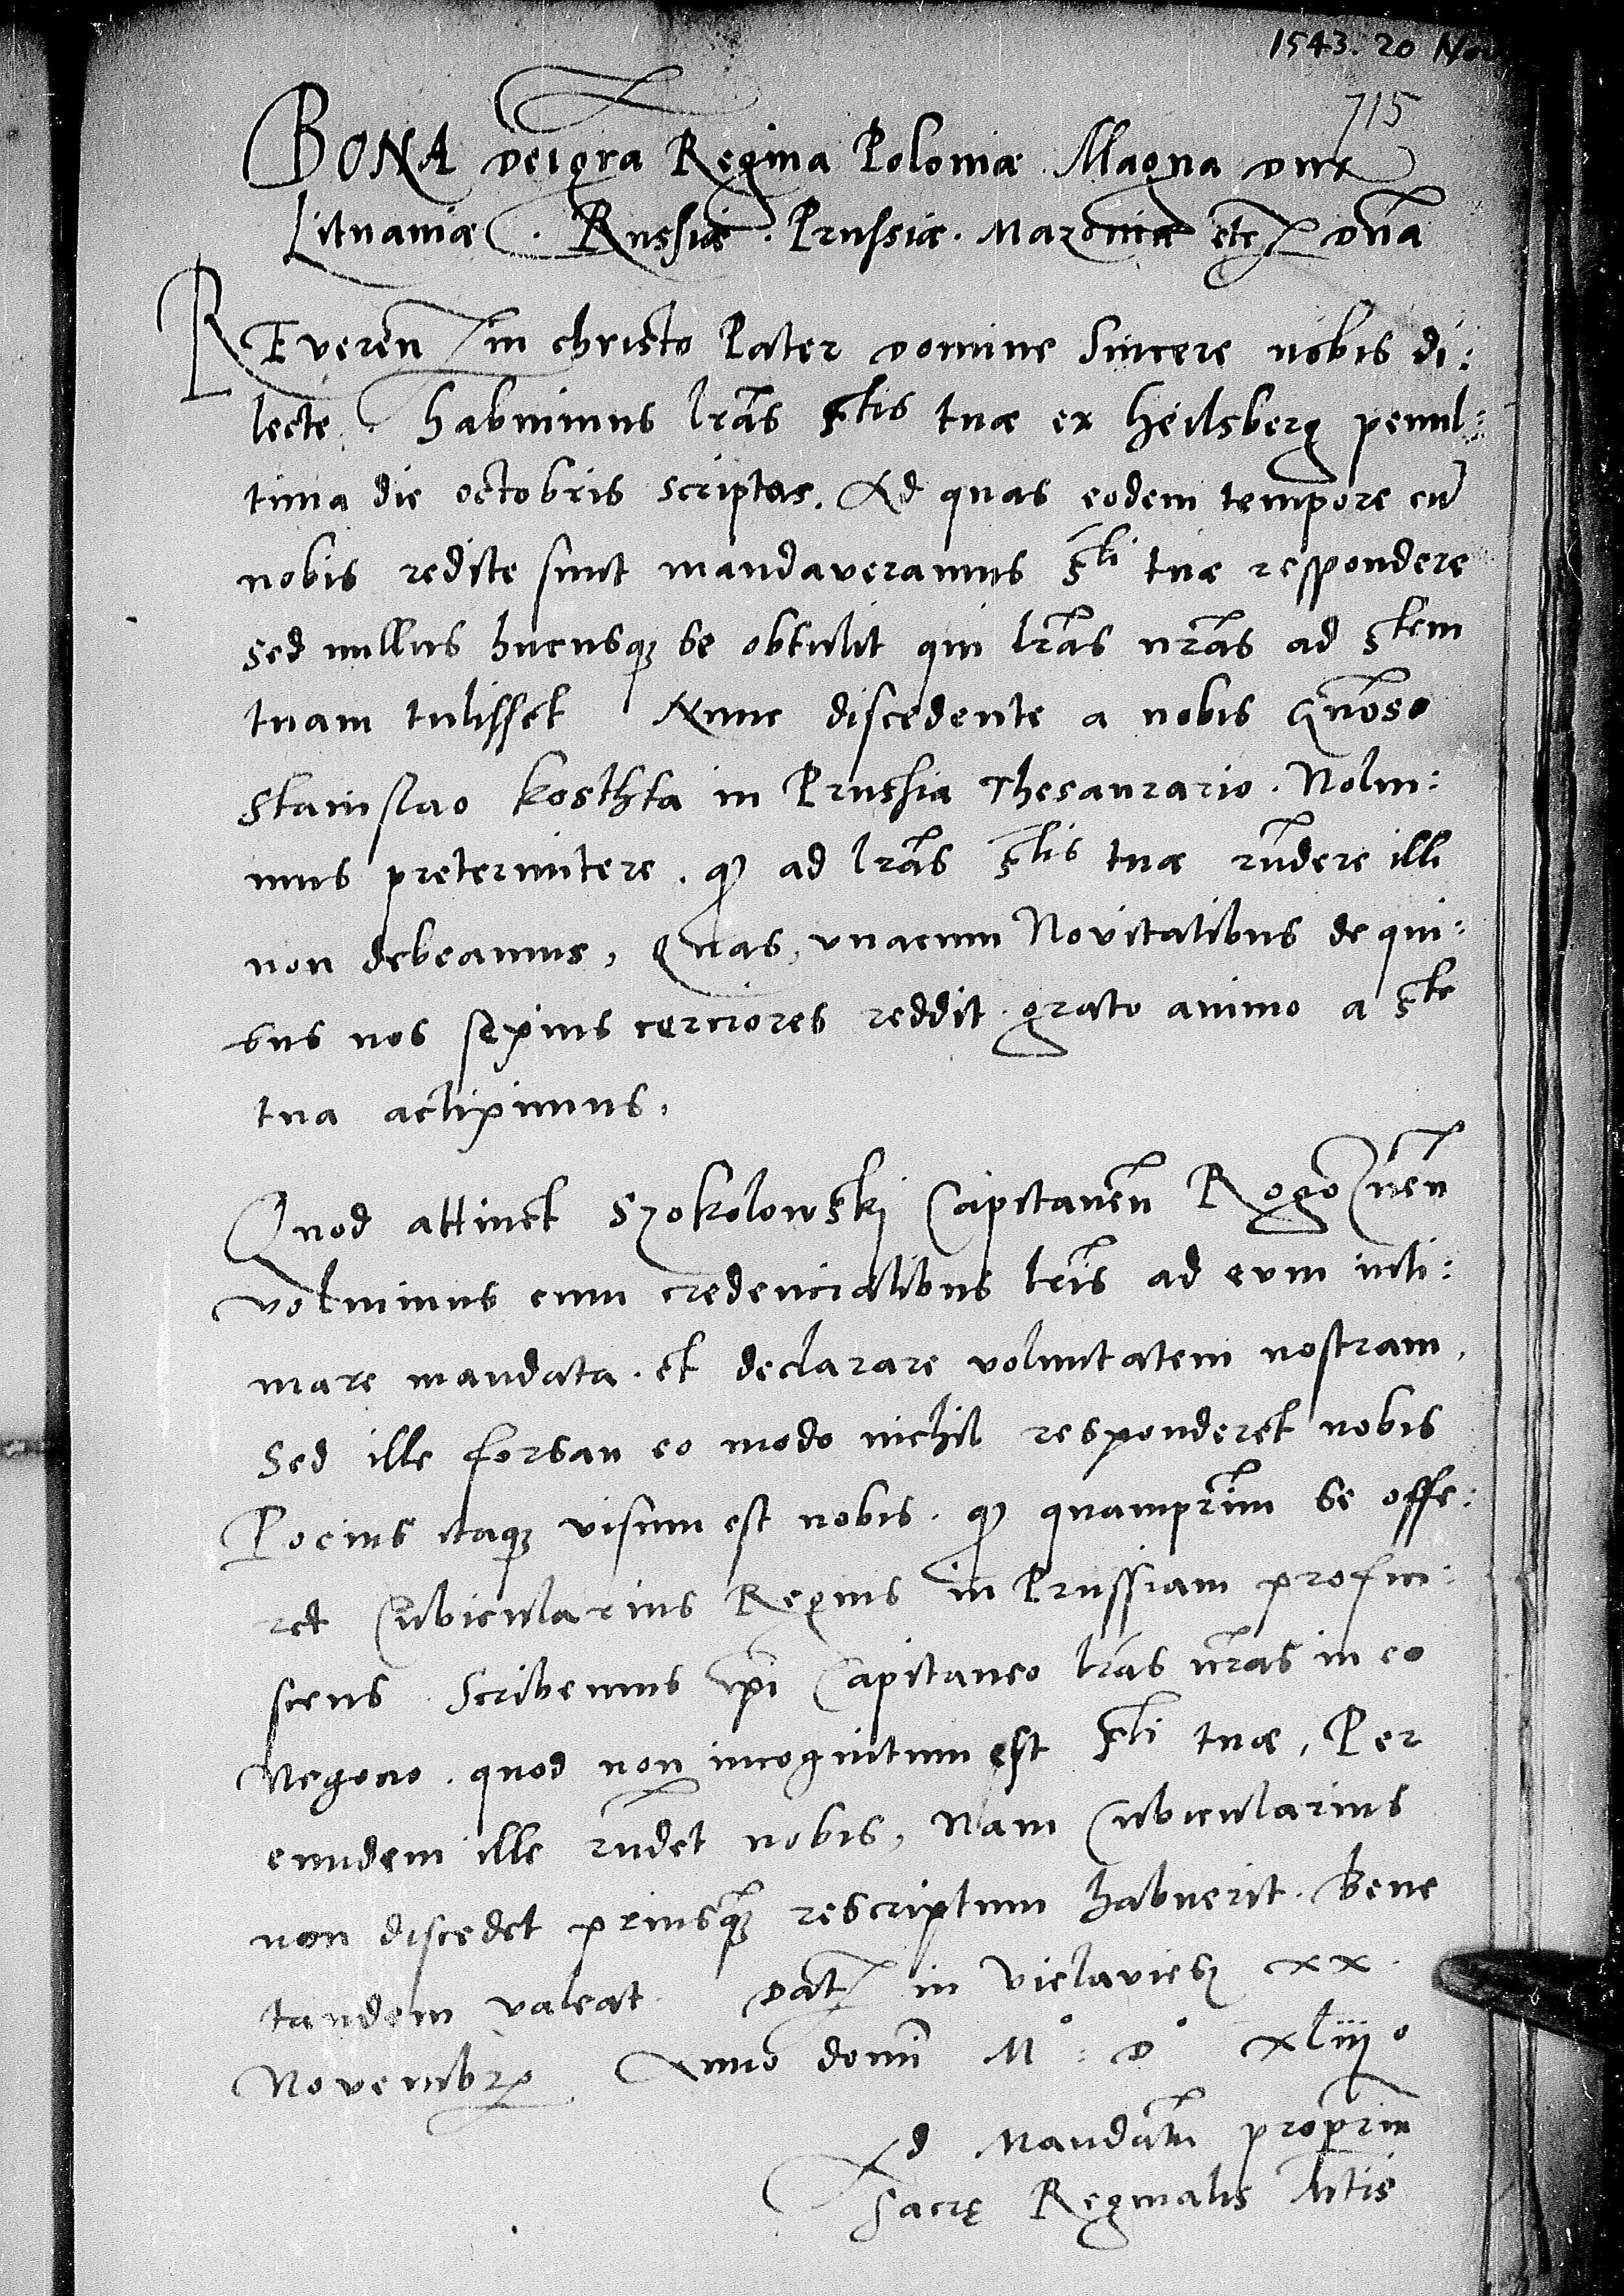 1543. 20 Nov
715
BONA dei gra Regina Poloniæ Magna dux
Lituaniæ . Russiæ . Prussiæ . Mazoviæ etc dna
REveren in christo Pater domine Sincere nobis di:
lecte . habuimus lras Stis tuæ ex Heilsberg penul:
tima die octobris scriptas. Ad quas eodem tempore cu
nobis redite sunt mandaveramus Sti tuæ respondere
sed nullus hucusq se obtulit qui lras nras ad Stem
tuam tulisset Nunc discedente a nobis Gnoso
Stanislao kosthka in Prussia Thesaurario . Nolui:
mus pretermittere . q ad lras Stis tuæ rndere illi
non debeamus, Quas, vnacum Novitatibus de qui:
bus nos sepius cerciores reddit . grato animo a Ste
tua accepimus.
Quod attinet Szokolowskj Capitanen Rogoznen
voluimus cum credencialibus lris ad eum inti:
mare mandata . et declarare voluntatem nostram,
Sed ille forsan eo modo nichil responderet nobis
Pocius itaq visum est nobis . q quamprim se offe:
ret Cubicularius Regius in Prussiam profici:
scens . Scribemus ipi Capitaneo lras nras in eo
Negocio . quod non incognitum est Sti tuæ, Per
eundem ille rndet nobis, Nam Cubicularius
non discedet priusq rescriptum habuerit. Bene
tandem valeat. Dat in Vielavies xx.
Novembr Anno domi M° : D° xliij°
Ad Mandatu propriu
Sacrę Reginalis Mtis